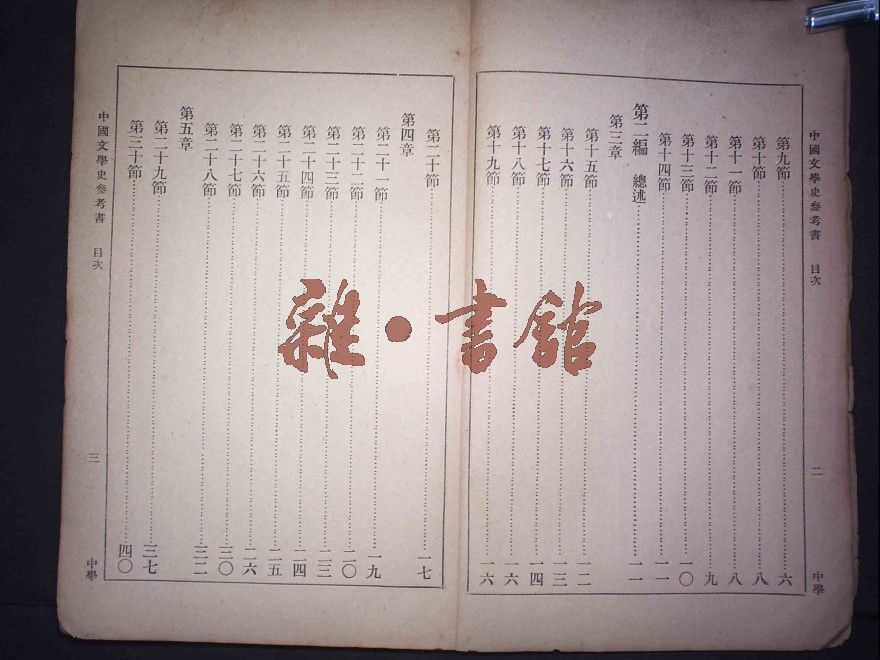 中國文學史參考書 目次 二 中學
第九節……六
第十節……八
第十一節……八
第十二節……九
第十三節……一〇
第十四節……一一
第二編 總述……一一
第三章
第十五節……一二
第十六節……一三
第十七節……一四
第十八節……一六
第十九節……一六
第二十節……一七
第四章
第二十一節……一九
第二十二節……二〇
第二十三節……二三
第二十四節……二四
第二十五節……二五
第二十六節……二六
第二十七節……三〇
第二十八節……三二
第五章
第二十九節……三七
第三十節……四〇
中國文學史參考書 目次 三 中學
雜·書館